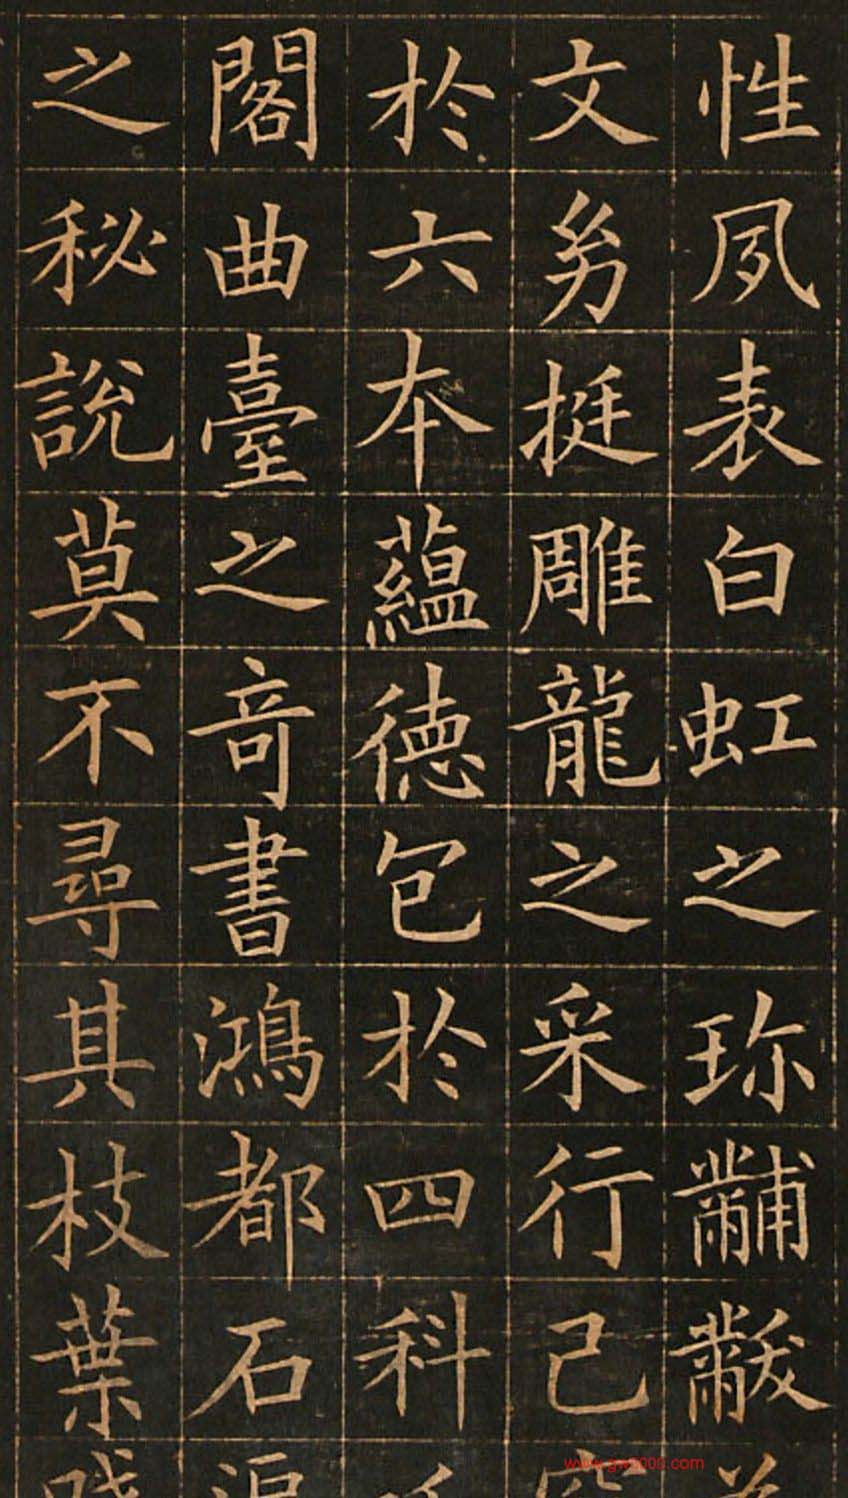 性夙表白虹之珎黼黻
文幼挺雕龍之采行己
於六本蘊徳包於四科
閣曲臺之竒書鴻都石
之秘說莫不尋其枝葉